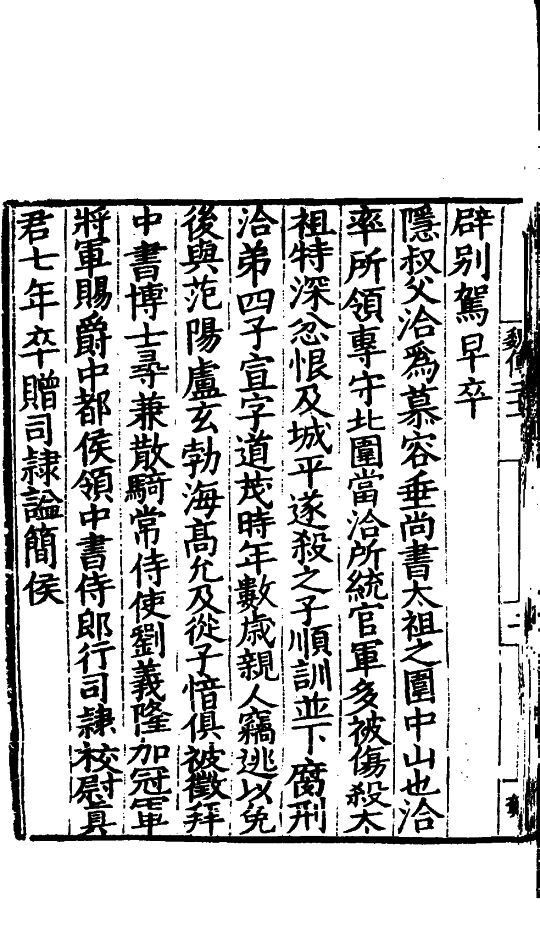 辟別駕早卒
隱叔父洽爲慕容垂尚書太祖之圍中山也洽
率所領專守北圍當洽所統官軍多被傷殺太
祖特深忿恨及城平遂殺之子順訓並下腐刑
洽弟四子宣字道茂時年數歲親人竊逃以免
後與范陽盧玄勃海髙允及從子愔俱被徵拜
中書博士尋兼散騎常侍使劉義隆加冠軍
將軍賜爵中都侯領中書侍郎行司隷校尉真
君七年卒贈司隷謚簡侯